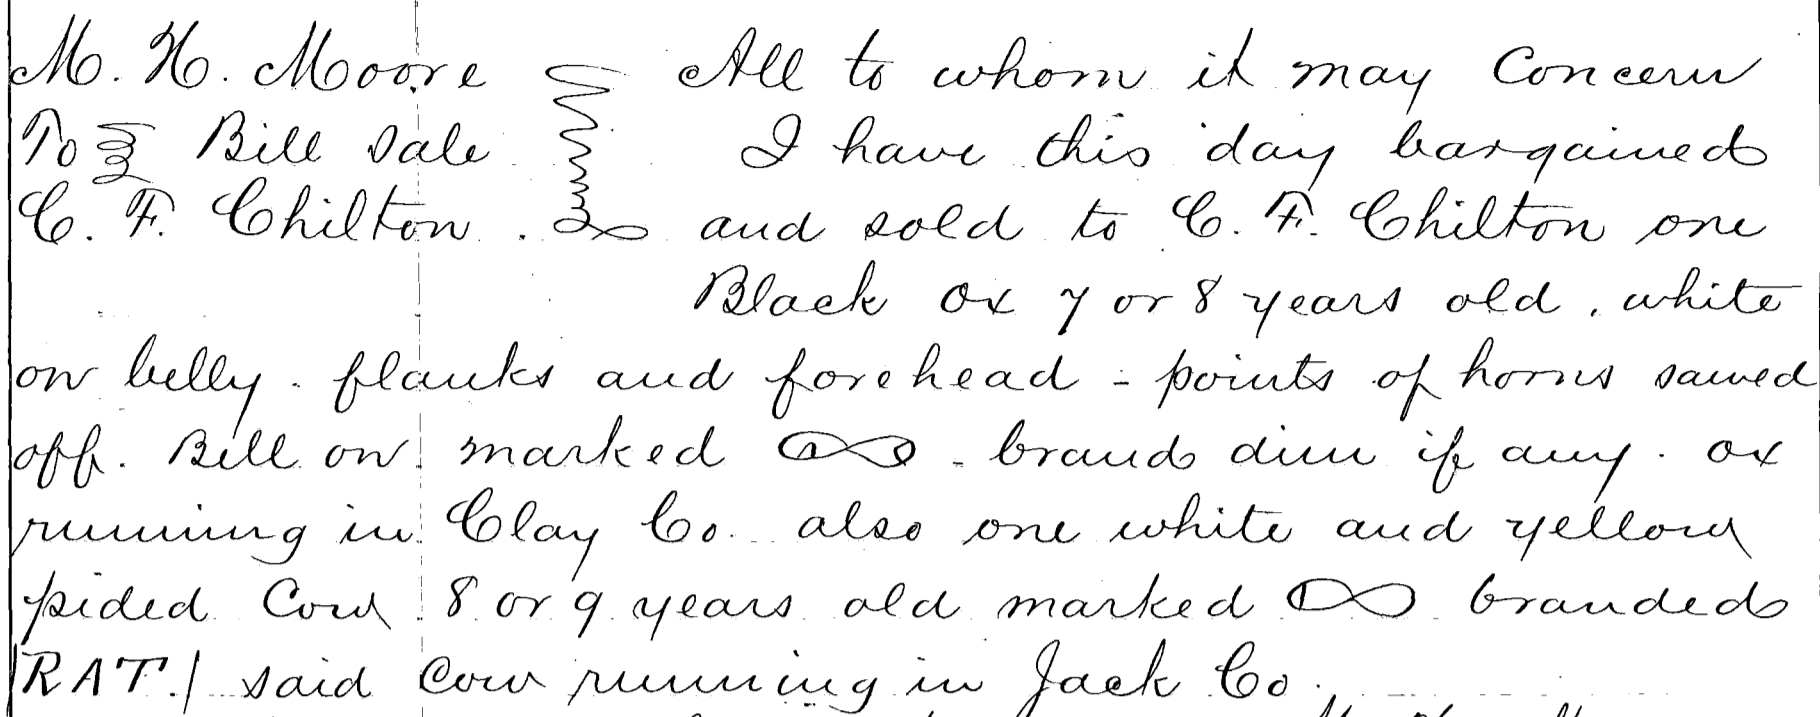 M. H. Moore All to whom it may Concern
To Bill Sale I have this day bargained
C. F. Chilton. and sold to C. F. Chilton one
Black Ox 7 or 8 years old, white
on belly. flanks and forehead - points of horns sawed
off. Bell on marked - brand dim if any. Ox
running in Clay Co. also one white and yellow
pided Cow 8 or 9 years old marked branded
|RAT.| said Cow running in Jack Co.